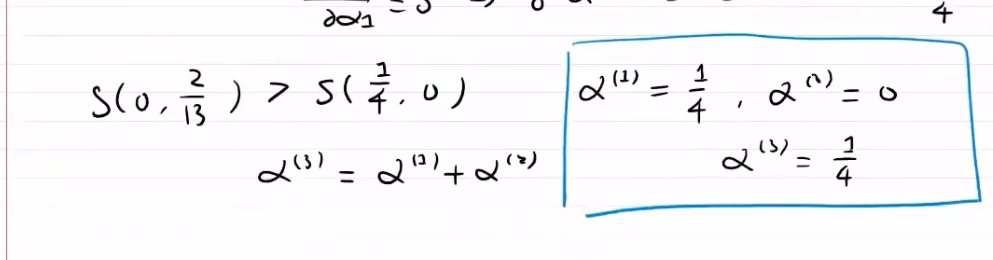 ∂α1 = 0
4
S(0, 2/13) > S(1/4, 0)
α^(3) = α^(1) + α^(2)
α^(1) = 1/4, α^(2) = 0
α^(3) = 1/4